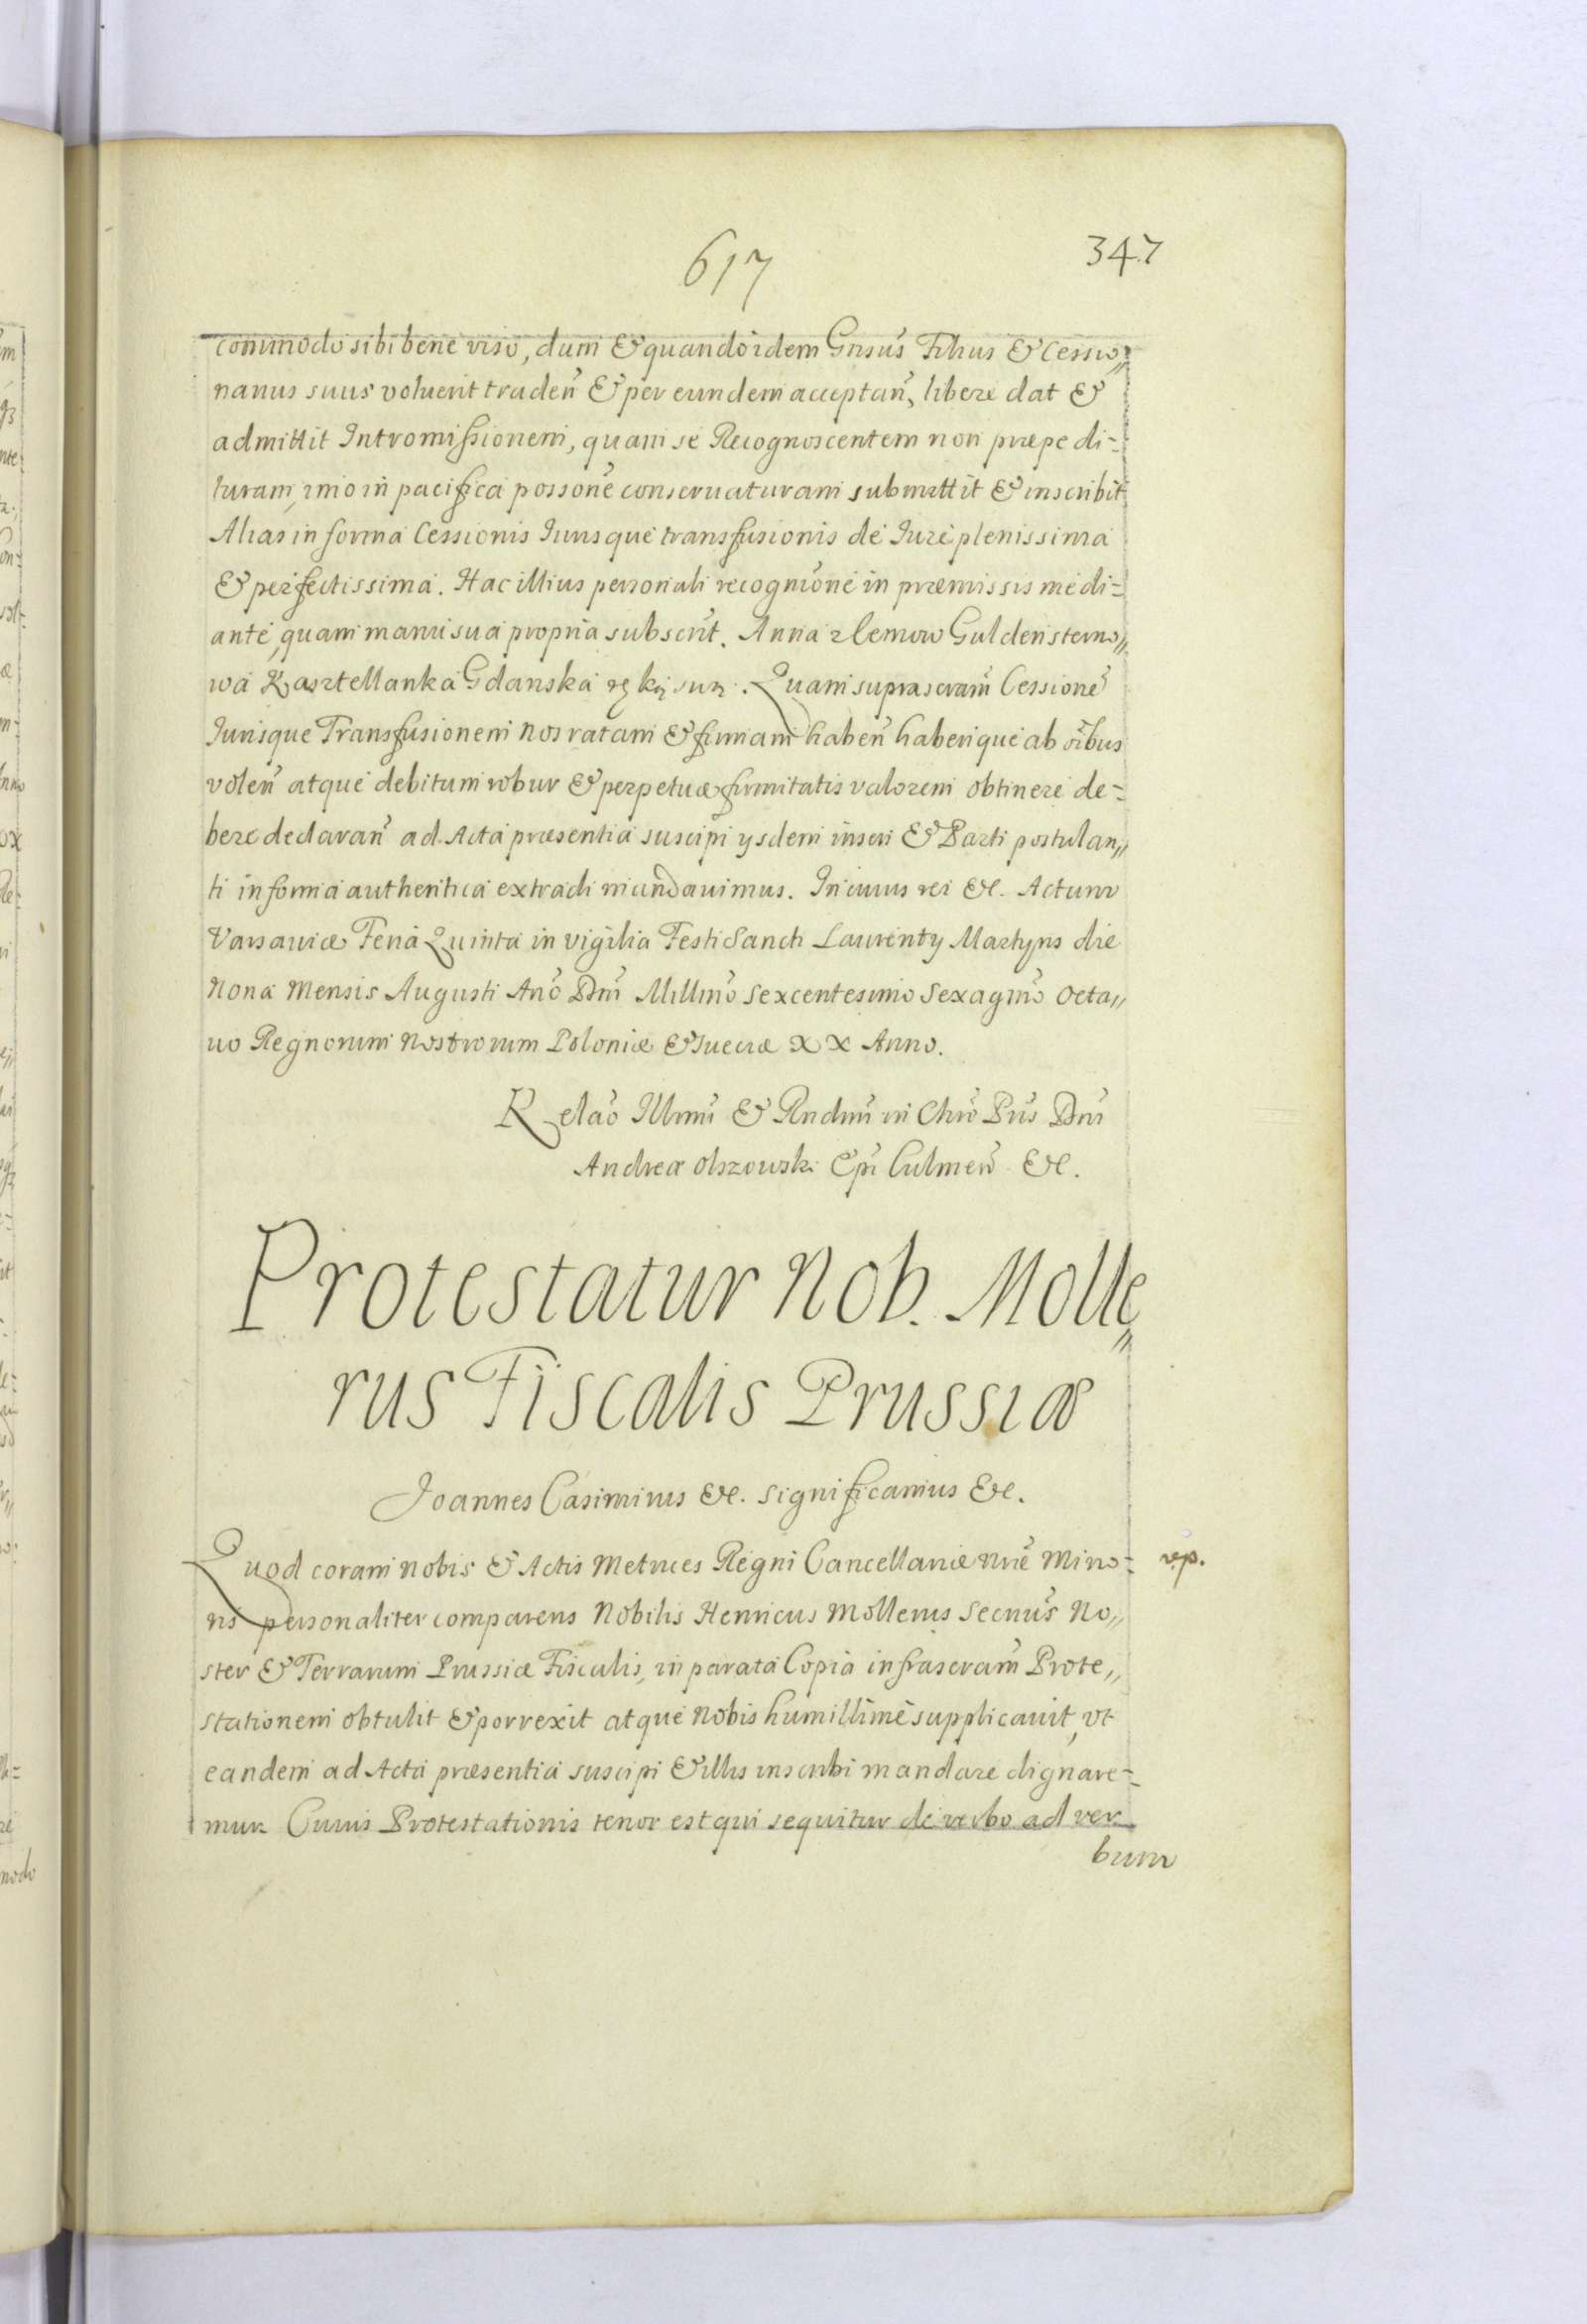 617
347
commodo sibi bene viso, dum & quando idem Gnsus Filius & Cessio„
narius suus voluerit traden̄ & per eundem acceptan̄, libere dat &
admittit Intromissionem, quam se Recognoscentem non præpedi-
turam, imo in pacifica possone conservaturam submittit & inscribit
Alias in forma Cessionis Iurisque transfusionis de Iure plenissima
& perfectissima. Hac illius personali recognitione in præmissis medi-
ante, quam manu sua propria subscrit. Anna z Lemow Guldensterno„
wa Kasztellanka Gdanska ręką swą. Quam suprascram̄ Cessionē
Iurisque Transfusionem Nos ratam & firmam haben̄ haberique ab oībus
volen̄ atque debitum robur & perpetuæ firmitatis valorem obtinere de-
bere declaran̄ ad Acta præsentia suscipi ysdem inseri & Parti postulan„
ti in forma authentica extradi mandavimus. In cuius rei &c. Actum
Varsaviæ Feria Quinta in vigilia Festi Sancti Laurenty Martyris die
Nona Mensis Augusti Anō Dnī Millmō Sexcentesimo Sexagmō Octa„
vo Regnorum Nostrorum Poloniæ & Sueciæ XX Anno.
Relaō Illrmī & Rndmī in Chrō Prīs Dnī
Andreæ Olszowski Epī Culmen̄ &c.
Protestatur Nob. Molle„
rus Fiscalis Prussiæ
Joannes Casimirus &c. Significamus &c.
Quod coram Nobis & Actis Metrices Regni Cancellariæ Nrīe Mino-
rep.
ris personaliter comparens Nobilis Henricus Mollerus Secriūs No„
ster & Terrarum Prussiæ Fiscalis, in parata Copia infrascram̄ Prote„
stationem obtulit & porrexit atque Nobis humillimè supplicavit, vt
eandem ad Acta præsentia suscipi & illis inscribi mandare dignare-
mur. Cuius Protestationis tenor est qui sequitur de verbo ad ver
bum